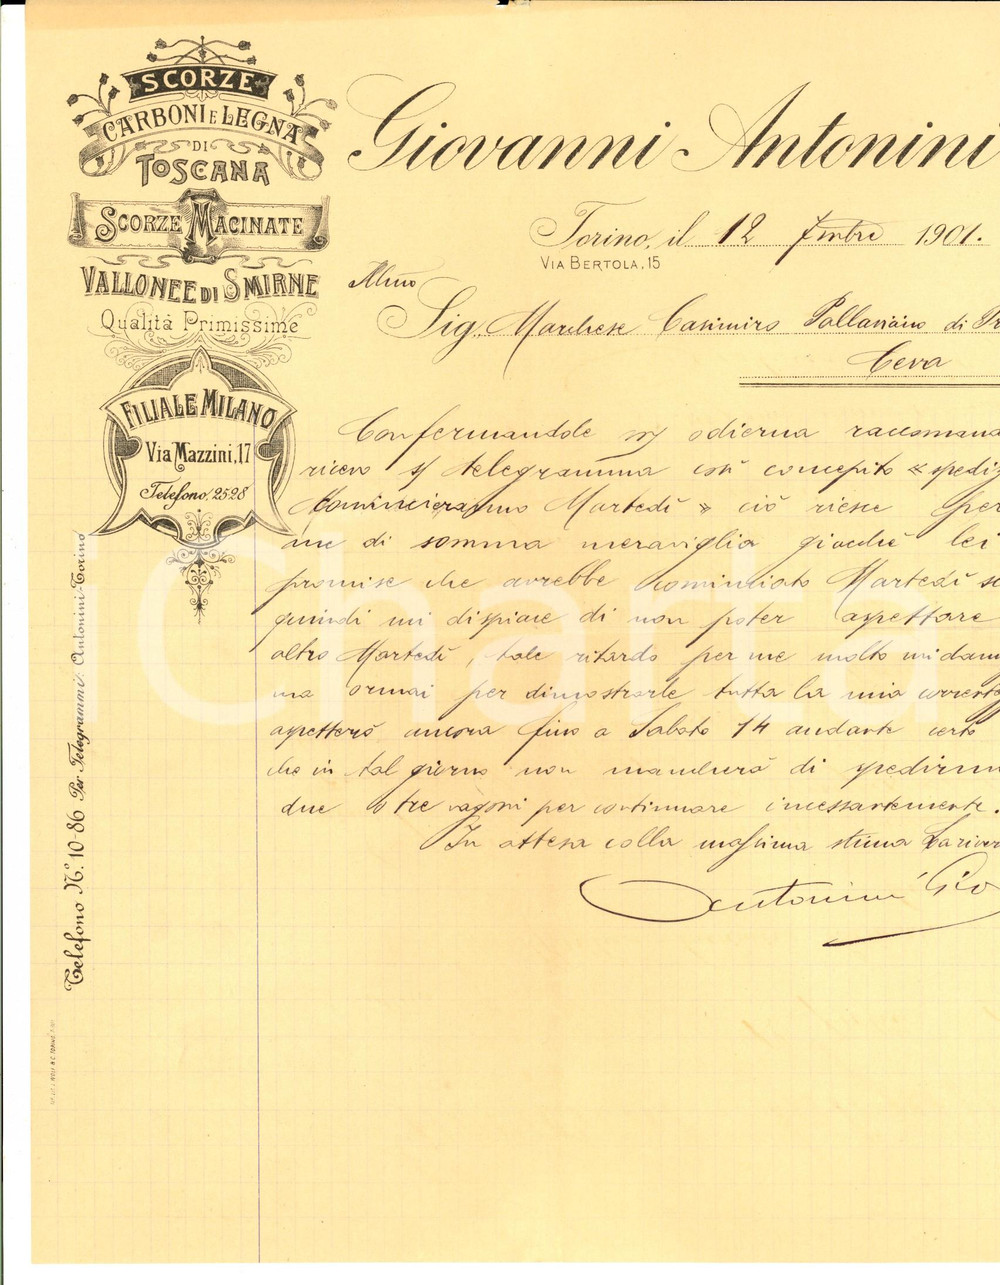 SCORZE
CARBONI E LEGNA
DI
TOSCANA
SCORZE MACINATE
VALLONEE DI SMIRNE
Qualitá Primissime
FILIALE MILANO
Via Mazzini, 17
Telefono, 2528
Telefono N.º 10-86 Per Telegrammi: Antonini-Torino
Giovanni Antonini
Torino, il 12 7mbre 1901.
VIA BERTOLA, 15
Sig. Marchese Casimiro Pallavicino di Pr
Ceva
Confermandole odierna raccomand
ricevo s/ telegramma così concepito « spediz
Comincieranno Martedì » ciò riesce per
me di somma meraviglia giacchè lei
promise che avrebbe cominciato Martedì s
quindi mi dispiace di non poter aspettare
altro Martedì, tale ritardo per me molto mi dann
ma ormai per dimostrarle tutta la mia corrente
aspetterò ancora fino a Sabato 14 andante certo
che in tal giorno non mancherà di spedirm
due o tre vagoni per continuare incessantemente.
In attesa colla massima stima La river
Antonini Gio
Charta